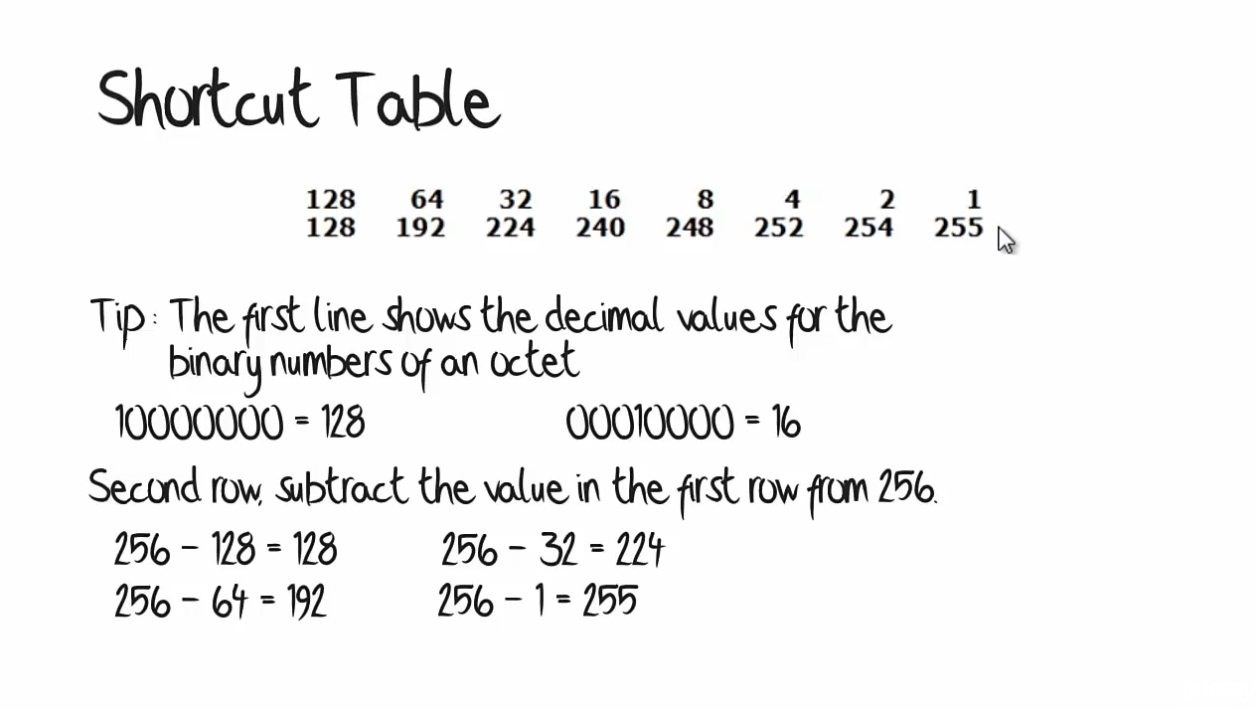 Shortcut Table
128 64 32 16 8 4 2 1
128 192 224 240 248 252 254 255
Tip: The first line shows the decimal values for the
binary numbers of an octet
10000000 = 128 00010000 = 16
Second row, subtract the value in the first row from 256.
256 - 128 = 128 256 - 32 = 224
256 - 64 = 192 256 - 1 = 255